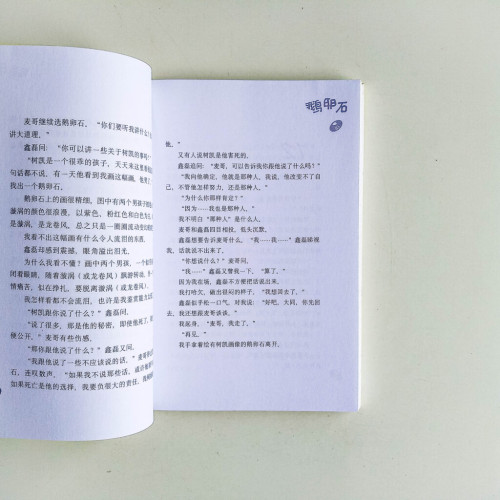 麦哥继续选鹅卵石，“你们要听我讲什么？
讲大道理。”
鑫磊问：“你可以讲一些关于树凯的事吗？”
“树凯是一个很乖的孩子，天天来这里
句话都不说，有一天他看到我画这幅画，他
找出一个鹅卵石。
鹅卵石上的画很精细，图中有两个男孩
漩涡的颜色很浪漫，以紫色、粉红色和白色为
是漩涡，是龙卷风，总之只是一圈圈流动
我看不出这幅画有什么令人流泪的东西。
鑫磊却感到震撼，眼角溢出泪光。
为什么我看不懂？画中两个男孩，一个
闭着眼睛，随着漩涡（或龙卷风）飘游转动，
情痛苦，似在挣扎，要脱离漩涡（或龙卷风）
我怎样看都不会流泪，也许是我鉴赏能力
“树凯跟你说了什么？”鑫磊问。
“说了很多，那是他的秘密，即使他死了，
便公开。”麦哥有些伤感。
“那你跟他说了什么？”鑫磊又问。
“我跟他说了一些不应该说的话，”麦哥
石，连叹数声，“如果我不说那些话，或许他
如果死亡是他的选择，我要负很大的责任，
鹅卵石
他。”
又有人说树凯是他害死的。
鑫磊追问：“麦哥，可以告诉我你跟他说了什么吗？”
“我向他确定，他就是那种人，我说，他改变不了自
己，不管他怎样努力，还是那种人。”
“为什么你那样肯定？”
“因为……我也是那种人。”
我不明白“那种人”是什么人。
麦哥和鑫磊四目相投，低头沉默。
鑫磊想要告诉麦哥什么，“我……我……”鑫磊睇视
我，话就说不出来了。
“你想说什么？”麦哥问。
“我……”鑫磊又瞥我一下，“算了。”
因为我在场，鑫磊不方便把话说出来。
我打哈欠，做出很闷的样子，“我想回去了。”
鑫磊似乎松一口气，对我说：“好吧，大同，你先回
去，我还想跟麦哥谈谈。”
我起身，“麦哥，我走了。”
“再见。”
我手拿着绘有树凯画像的鹅卵石离开。